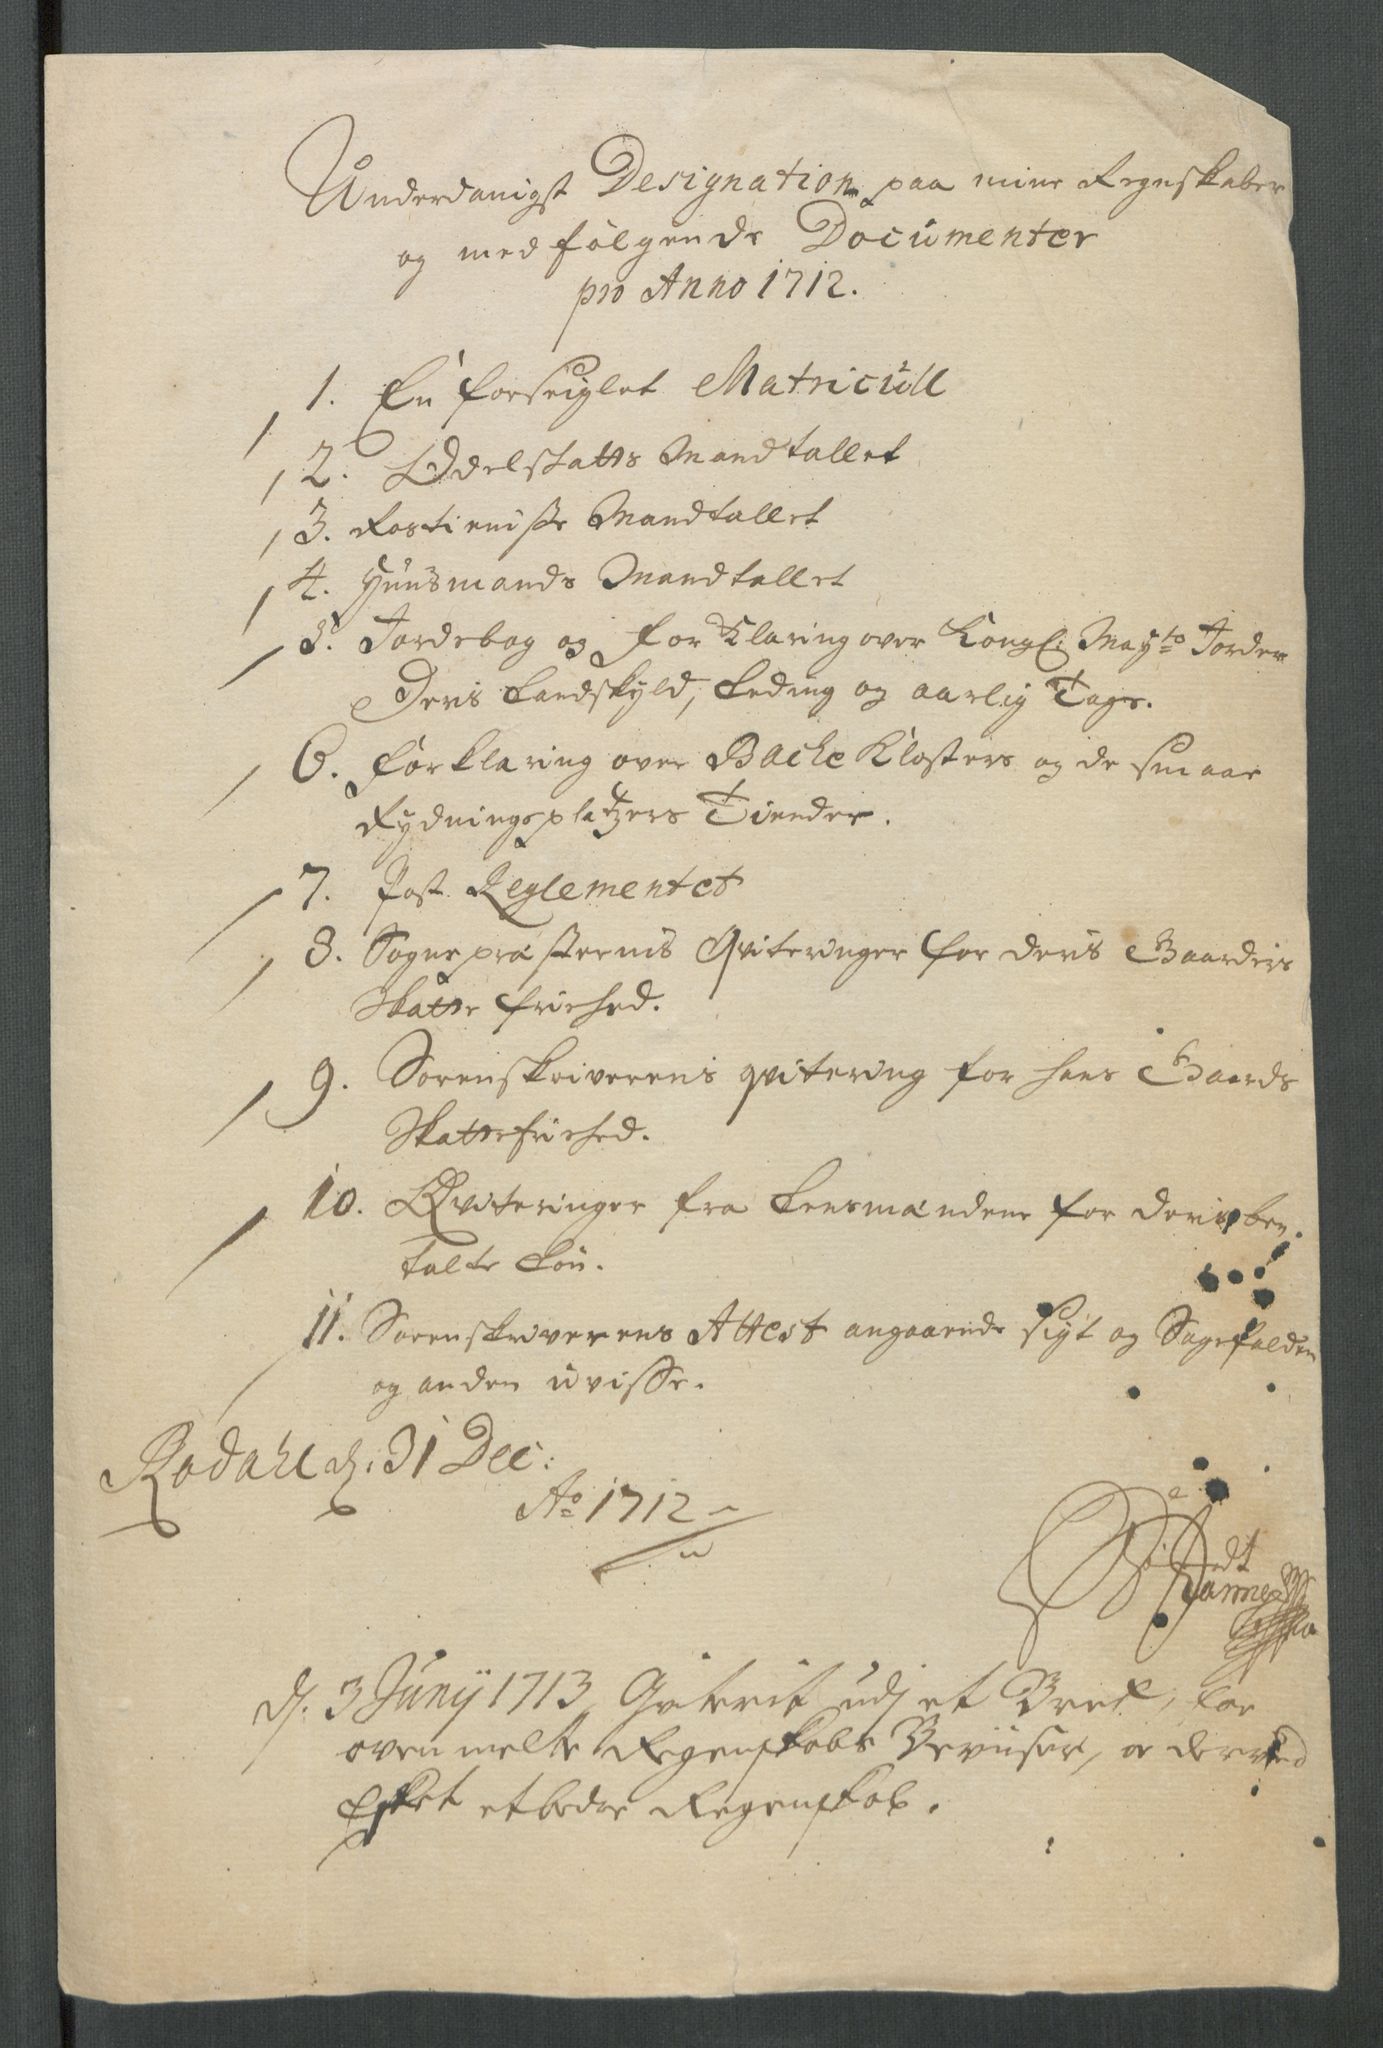 Underdanigst Designation paa mine Regnskaber
og medfølgende Documenter
pro Anno 1712.
1. En forseiglet Matricull
2. Oddelskatts Mandtallet
3. Rostieniste Mandtallet
4. Huusmands Mandtallet
5. Jordebog og forklaring over Kongl: Mayts Jorder
Deris Landskyld, Leding og aarlig Tage.
6. forklaring over Bache Klosters og de smaae
Rydningsplatzers Tiender.
7. Post Reglementet
8. Sognepræsternis Qviteringer for deris Gaarders
Skatte friehed.
9. Sorenskriverens qvitering for hans Gaards
Skattefriehed.
10. Qviteringer fra Lensmændene for deris be-
talte Løn.
11. Sorenskriverens Attest angaaende Sigt og Sagefalden
og anden uvisse.
Rodahl d: 31 Dec:
Ao 1712
d: 3 Junij 1713 Qviterit udj et Bref, for
ovenmelte Regenskabs Beviiser, og derved
Esket et bedre Regenskab.